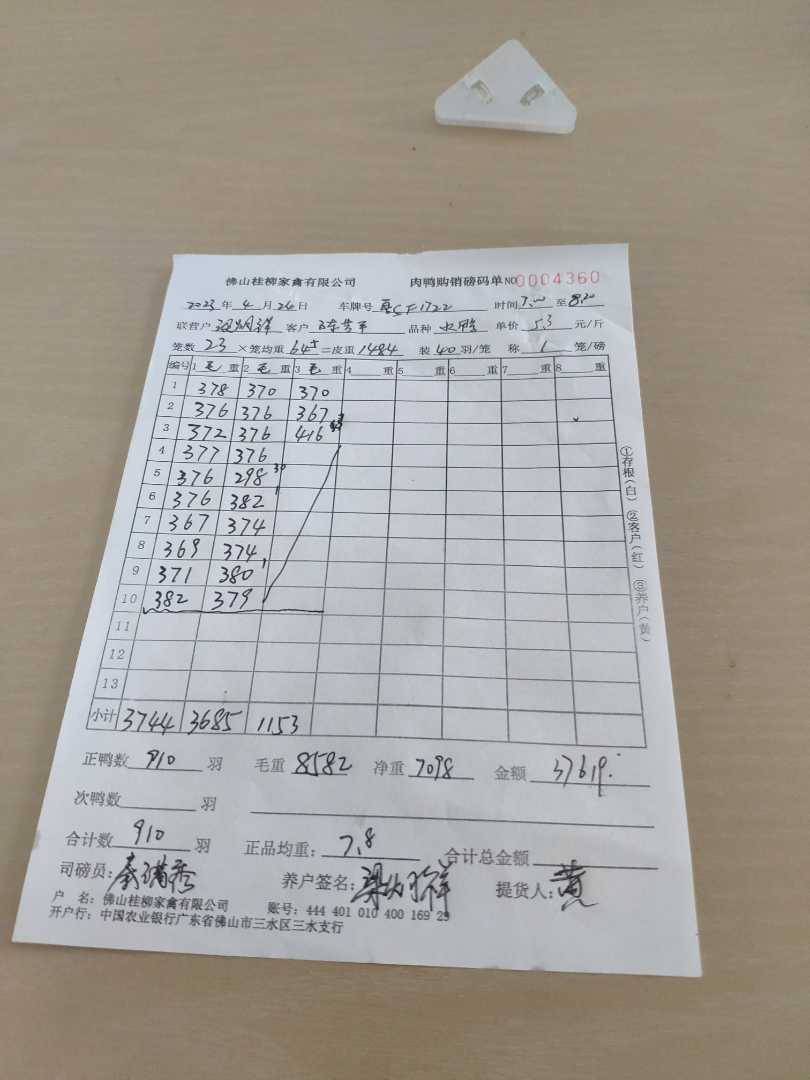 佛山桂柳家禽有限公司 肉鸭购销磅码单 NO 0004360
2023年 4 月 24 日 车牌号 CF1722 时间 7:00 至 8:20
联营户 客户 品种 水鸭 单价 5.3 元/斤
笼数 23 ×笼均重 64 =皮重 1484 装 40 羽/笼 称 1 笼/磅
编号 1 毛 重 2 毛 重 3 毛 重 4 重 5 重 6 重 7 重 8 重
1 378 370 370
2 376 376 367
3 372 376 416
4 377 376
5 376 298 30
6 376 382
7 367 374
8 369 374
9 371 380
10 382 379
11
12
13
小计 3744 3685 1153
①存根(白) ②客户(红) ③养户(黄)
正鸭数 910 羽 毛重 8582 净重 7098 金额 37619.
次鸭数 羽
合计数 910 羽 正品均重: 7.8 合计总金额
司磅员: 养户签名: 提货人: 黄
户 名: 佛山桂柳家禽有限公司 账号: 444 401 010 400 169 29
开户行: 中国农业银行广东省佛山市三水区三水支行